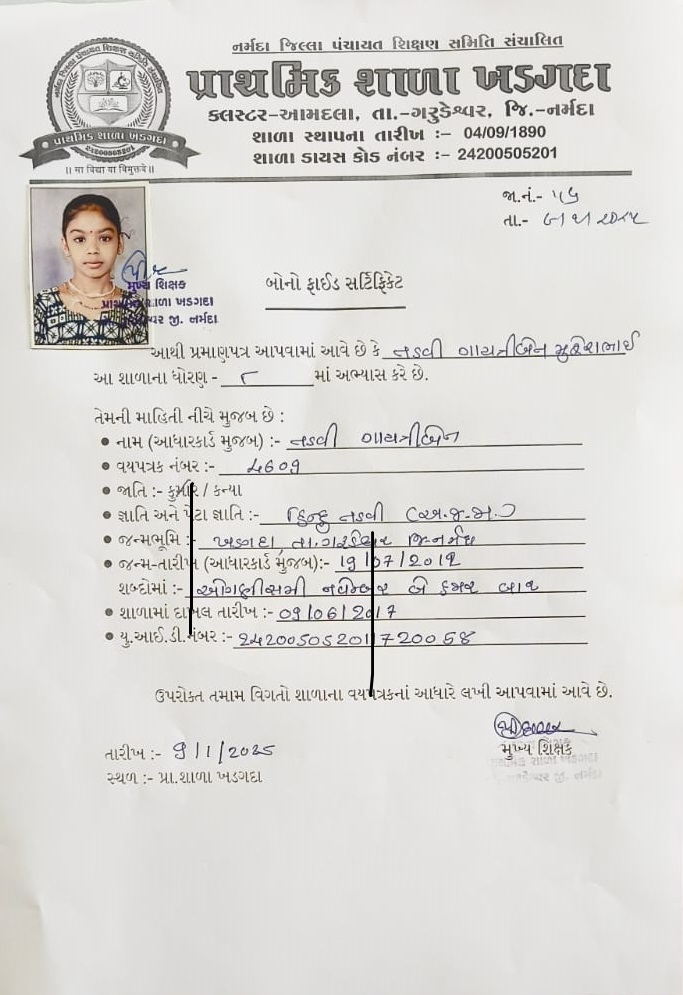 નર્મદા જિલ્લા પંચાયત શિક્ષણ સમિતિ સંચાલિત
પ્રાથમિક શાળા ખડગદા
ક્લસ્ટર-આમદલા, તા.-ગરુડેશ્વર, જિ.-નર્મદા
શાળા સ્થાપના તારીખ :- 04/09/1890
શાળા ડાયસ કોડ નંબર :- 24200505201
નર્મદા જિલ્લા પંચાયત શિક્ષણ સમિતિ સંચાલિત
પ્રાથમિક શાળા ખડગદા
24200505201
|| सा विद्या या विमुक्तये ||
જા.નં.- ૫૬
તા.- ૯ ૧ ૨૦૨૫
મુખ્ય શિક્ષક
પ્રાથમિક શાળા ખડગદા
જી. નર્મદા
બોનો ફાઈડ સર્ટિફિકેટ
આથી પ્રમાણપત્ર આપવામાં આવે છે કે તડવી ગાયત્રીબેન મુકેશભાઈ
આ શાળાના ધોરણ - ૮ માં અભ્યાસ કરે છે.
તેમની માહિતી નીચે મુજબ છે :
• નામ (આધારકાર્ડ મુજબ) :- તડવી ગાયત્રીબેન
• વયપત્રક નંબર :- 4609
• જાતિ :- કુમાર / કન્યા
• જ્ઞાતિ અને પેટા જ્ઞાતિ :- હિન્દુ તડવી (અ.જ.જા.)
• જન્મભૂમિ :- ખડગદા તા.ગરુડેશ્વર જિ-નર્મદા
• જન્મ-તારીખ (આધારકાર્ડ મુજબ):- 19/07/2012
શબ્દોમાં :- ઓગણીસમી નવેમ્બર બે હજાર બાર
• શાળામાં દાખલ તારીખ :- 09/06/2017
• યુ.આઈ.ડી.નંબર :- 242005052017720058
ઉપરોક્ત તમામ વિગતો શાળાના વયપત્રકનાં આધારે લખી આપવામાં આવે છે.
તારીખ :- 9/1/2025
સ્થળ :- પ્રા.શાળા ખડગદા
મુખ્ય શિક્ષક